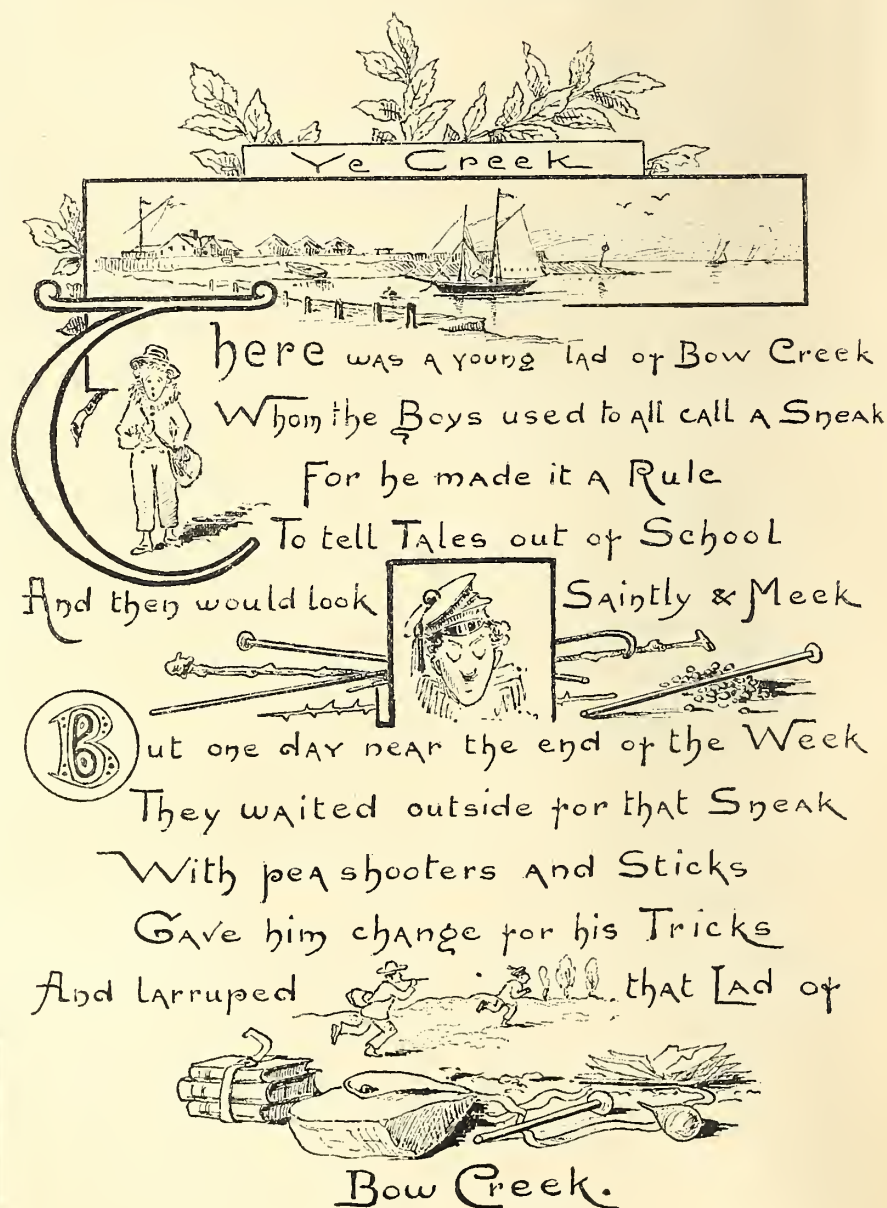 Ye Creek
There was a young lad of Bow Creek
Whom the Boys used to all call a Sneak
For he made it a Rule
To tell Tales out of School
And then would look Saintly & Meek
But one day near the end of the Week
They waited outside for that Sneak
With pea shooters and Sticks
Gave him change for his Tricks
And larruped that Lad of
Bow Creek.